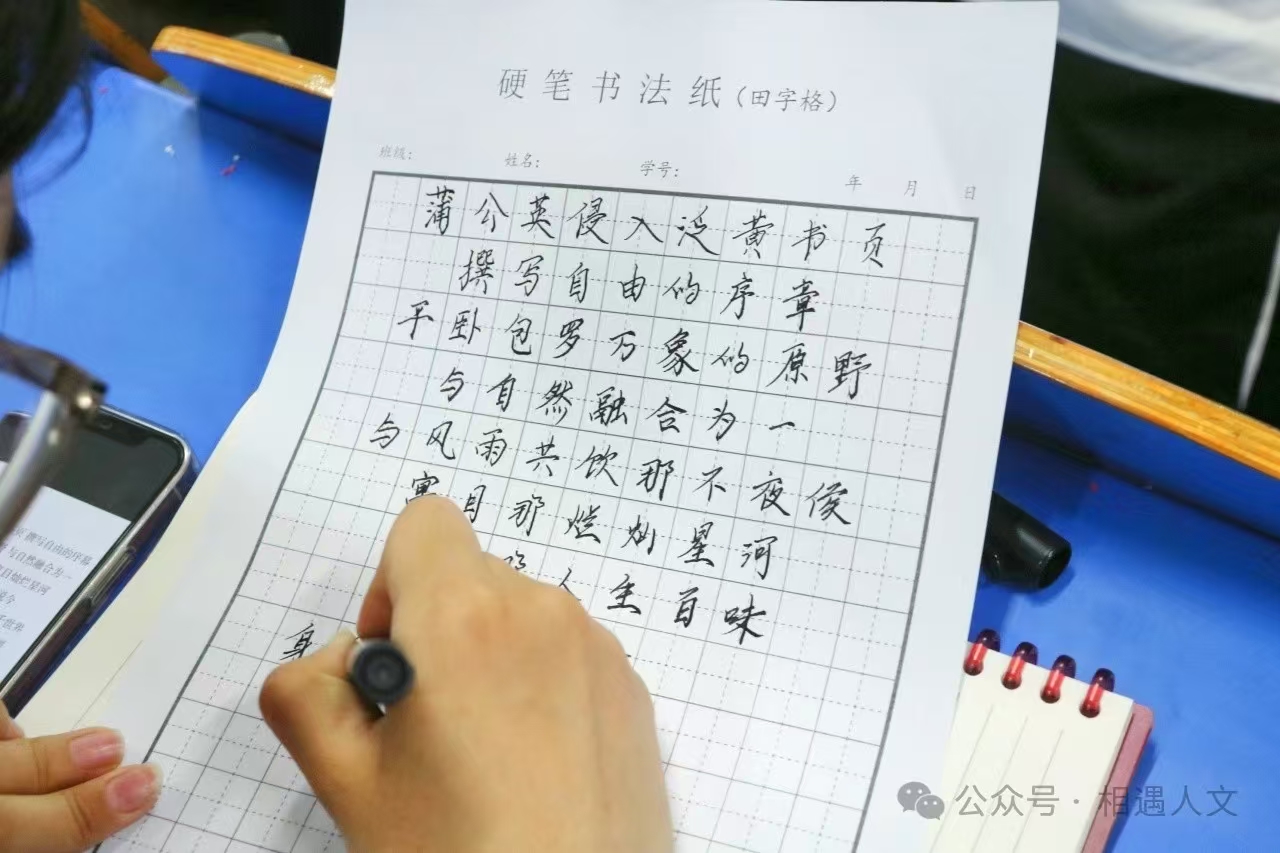 硬笔书法纸(田字格)
班级: 姓名: 学号: 年 月 日
蒲公英侵入泛黄书页
撰写自由的序章
平卧包罗万象的原野
与自然融合为一
与风雨共饮那不夜侯
寓目那烂灿星河
人生百味
身
撰写自由的序幕
与自然融合为一
目灿烂星河
公众号·相遇人文